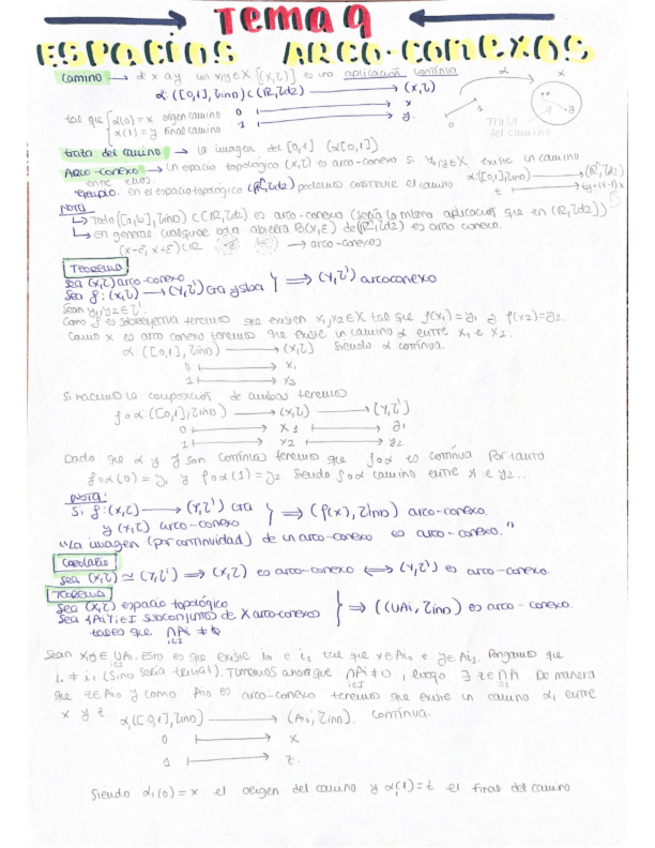 Tema 9
ESPACIOS ARCO-CONEXOS
Camino → de x a y con x,y∈X [(X,τ)] es una aplicación continua
α: ([0,1], τind) ⊂ (ℝ, τd2) → (X,τ)
tal que { α(0) = x origen camino 0 ↦ x
α(1) = y final camino 1 ↦ y
α X
0 1 x y
Traza del camino
traza del camino → La imagen del [0,1] (α[0,1])
Arco-conexo → Un espacio topológico (X,τ) es arco-conexo si ∀x,y∈X existe un camino
entre ellos.
ejemplo. En el espacio topológico (ℝⁿ, τd2) podemos construir el camino α: ([0,1], τind) → (ℝⁿ, τd2)
t ↦ ty+(1-t)x
Nota
↳ Todo ([a,b], τind) ⊂ (ℝ, τd2) es arco-conexo (sería la misma aplicación que en (ℝ, τd2))
↳ En general cualquier bola abierta B(x,ε) de (ℝⁿ, τd2) es arco conexo.
(x-ε, x+ε) ⊂ ℝ → arco-conexos
Teorema
Sea (X,τ) arco-conexo
Sea f: (X,τ) → (Y,τ') cta y sobre } ⟹ (Y,τ') arcoconexo
Sean y₁,y₂∈τ'.
Como f es sobreyectiva tenemos que existen x₁,x₂∈X tal que f(x₁)=y₁ y f(x₂)=y₂.
Como X es arco conexo tenemos que existe un camino α entre x₁ e x₂.
α: ([0,1], τind) → (X,τ) siendo α continua.
0 ↦ x₁
1 ↦ x₂
Si hacemos la composición de ambas tenemos
f∘α: ([0,1], τind) → (X,τ) → (Y,τ')
0 ↦ x₁ ↦ y₁
1 ↦ x₂ ↦ y₂
Dado que α y f son continuas tenemos que f∘α es continua. Por tanto
f∘α(0) = y₁ y f∘α(1) = y₂ siendo f∘α camino entre x e y₂..
Nota:
Si f: (X,τ) → (Y,τ') cta
y (X,τ) arco-conexo } ⟹ (f(X), τ'ind) arco-conexo.
"La imagen (por continuidad) de un arco-conexo es arco-conexo."
Corolario
Sea (X,τ) ≃ (Y,τ') ⟹ (X,τ) es arco-conexo ⟷ (Y,τ') es arco-conexo.
Teorema
Sea (X,τ) espacio topológico
Sea {Ai}i∈I subconjuntos de X arco-conexos } ⟹ (∪Ai, τind) es arco-conexo.
tales que ∩Ai ≠ ∅
i∈I
Sean x,y∈∪Ai. Esto es que existe i₀ e i₁ tal que x∈Ai₀ e y∈Ai₁. Pongamos que
i₀ ≠ i₁ (sino sería trivial). Tomemos ahora que ∩Ai ≠ ∅, luego ∃ z∈∩Ai. De manera
que z∈Ai₀ y como Ai₀ es arco-conexo tenemos que existe un camino α₁ entre
x y z. α₁([0,1], τind) → (Ai₀, τind). Continua.
0 ↦ x
1 ↦ z.
Siendo α₁(0) = x el origen del camino y α₁(1) = z el final del camino